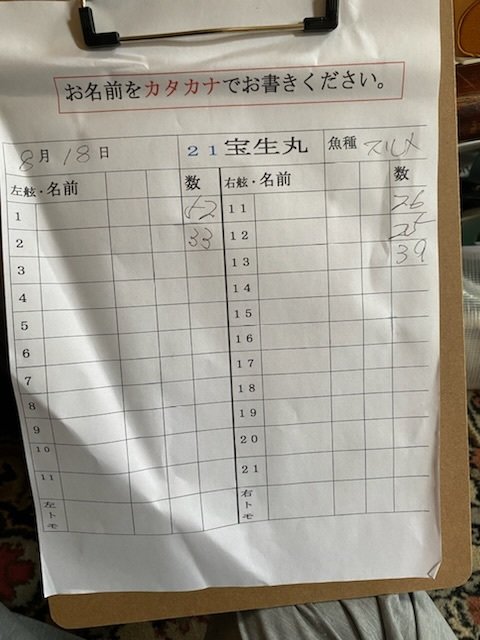 お名前をカタカナでお書きください。
8月18日 21宝生丸 魚種 スルメ
左舷・名前 数 右舷・名前 数
1 62 11 26
2 33 12 25
3 13 39
4 14
5 15
6 16
7 17
8 18
9 19
10 20
11 21
左トモ 右トモ